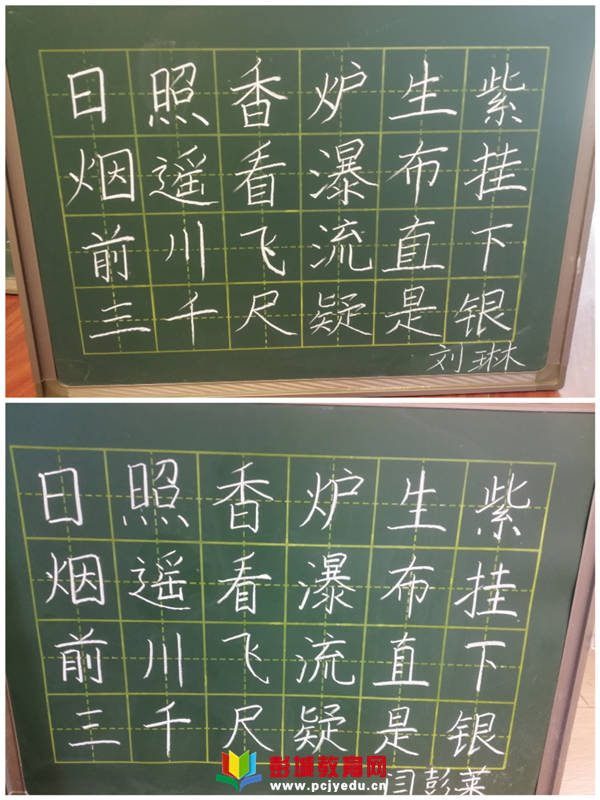 日照香炉生紫
烟遥看瀑布挂
前川飞流直下
三千尺疑是银
刘琳
日照香炉生紫
烟遥看瀑布挂
前川飞流直下
三千尺疑是银
闫彭莱
彭城教育网
www.pcjyedu.cn